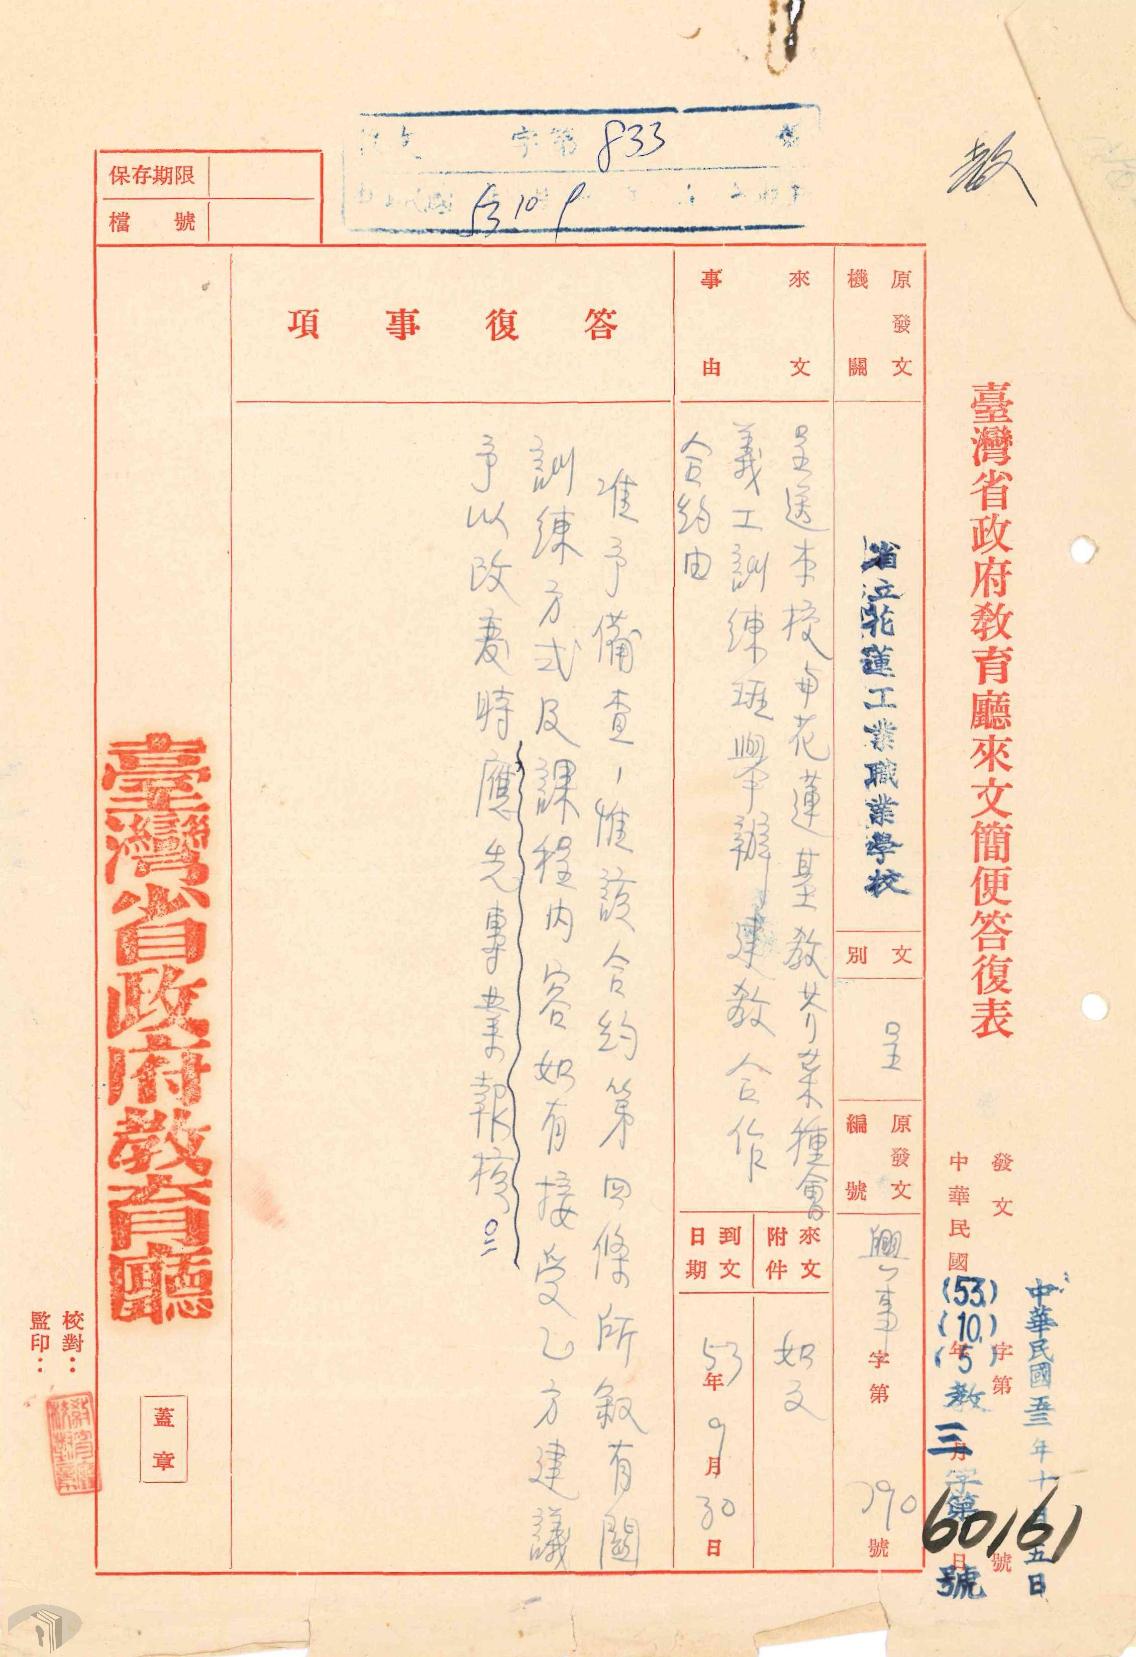 教
收文 字第833號
53 10 9
保存期限
檔號
臺灣省政府教育廳來文簡便答復表
發文 字第 號
中華民國 年 月 日
中華民國五三年十月五日
(53.)(10.)(5)教三字第60161號
原發文機關
省立花蓮工業職業學校
文別
呈
原發文編號
興事字第790號
來文事由
呈送本校與花蓮基教芥菜種會
義工訓練班舉辦建教合作
合約由
來文附件
如文
到文日期
53年9月30日
答復事項
准予備查,惟該合約第四條所敘有關
訓練方式及課程內容如有接受乙方建議
予以改變時應先專案報核。
臺灣省政府教育廳
蓋章
校對:
監印: